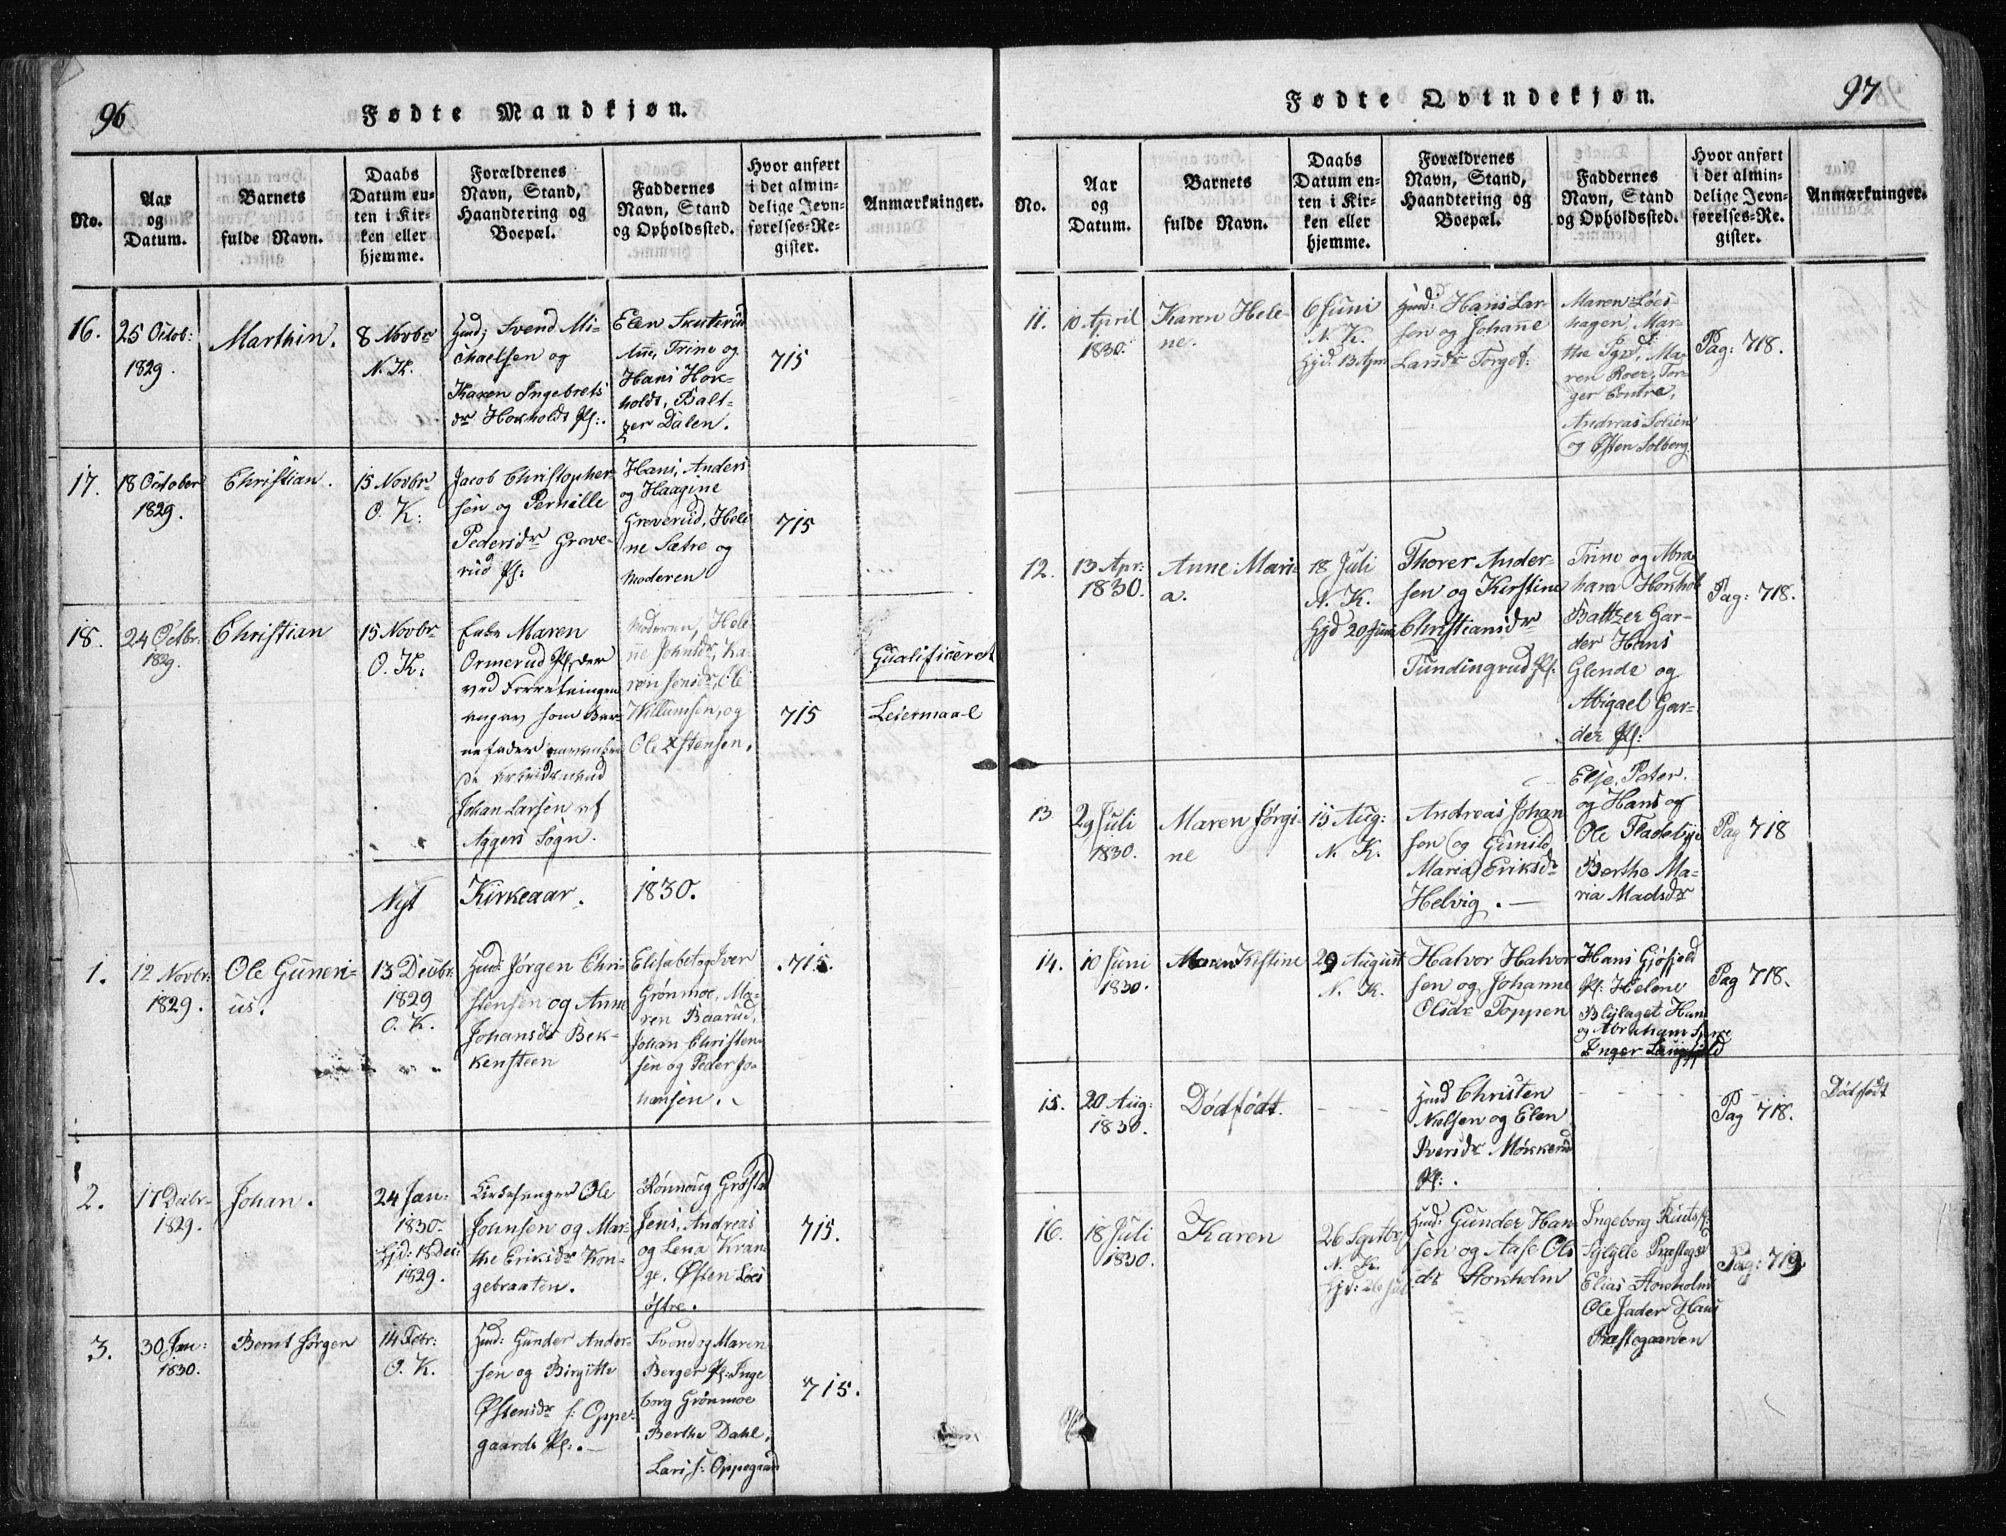 96
Fødte Mandkjøn.
No.
Aar
og
Datum.
Barnets
fulde Navn.
Daabs
Datum en-
ten i Kir-
ken eller
hjemme.
Forældrenes
Navn, Stand,
Haandtering og
Boepæl.
Faddernes
Navn, Stand
og Opholdssted.
Hvor anført
i det almin-
delige Jevn-
førelses-Re-
gister.
Anmærkninger.
16.
25 Octob:
1829.
Marthin.
8 Novbr
N. K.
Huusm: Svend Mi-
chaelsen og
Karen Ingebrets
dr Hoxholdt Pl:.
Elen Skuterud
Ane, Trine og
Hans Hox-
holdt, Balt-
zer Dalen.
715
17.
18 October
1829.
Christian.
15 Novbr
O. K:
Jacob Christopher-
sen og Pernille
Pedersdr Grave-
rud Pl:
Hans, Anders
og Haagine
Greverud, Hele
ne Sætre og
Moderen
715
18.
24 Octbr.
1829.
Christian
15 Novbr
O. K:
Enke Maren
Ormerud Pl, der
ved Forretningen
angav som Bar-
nefader
Johan Larsen af
Aggers Sogn.
Moderen, Hele
ne Johnsdr, Ka-
ren Jensdr, Ole
Willumsen, og
Ole Østensen.
715
Qualificeret
Leiermaal
Nyt Kirkeaar. 1830.
1.
12 Novbr:
1829.
Ole Guneri-
us.
13 Decbr.
1829
O. K.
Huusm: Jørgen Chri-
stensen og Anne
Johansdr Bek-
kensteen
Elisabet og Iver
Grønmoe, Ma-
ren Baarud,
Johan Christen-
sen og Peder Jo-
hansen.
715.
2.
17 Decbr.
1829.
Johan.
24 Jan:
1830.
Hjd: 18 Dec:
1829.
Kirkesanger Ole
Johnsen og Mar-
the Eriksdr Kon-
gebraaten.
Rønnoug Grøstad
Jens, Andreas
og Lena Kran-
ge. Østen Loes
østre.
715.
3.
30 Jan:
1830.
Bernt Jørgen
14 Febr:
O. K.
Huusm: Gunder Ander-
sen og Birgitte
Østensdr s: Oppe-
gaards Pl:.
Svend og Maren
Berger Pl: Inge
borg Grønmoe
Berthe Dahl,
Lars s: Oppegaard
715.
97
Fødte Qvindekjøn.
No.
Aar
og
Datum.
Barnets
fulde Navn.
Daabs
Datum en-
ten i Kir-
ken eller
hjemme.
Forældrenes
Navn, Stand,
Haandtering og
Boepæl.
Faddernes
Navn, Stand
og Opholdssted.
Hvor anført
i det almin-
delige Jevn-
førelses-Re-
gister.
Anmærkninger.
11.
10 April
1830.
Karen Hele-
ne.
6 Juni
N. K.
Hjd. 13 Apr:
Huusm: Hans Lar-
sen og Johane
Larsdr Torget:
Maren Loes-
hagen, Mar-
the Pgrd, Ma-
ren Roer, Tor-
ger Contra,
Andreas Solien
og Østen Solberg
Pag: 718.
12.
13 Apr:
1830.
Anne Mari-
a.
18 Juli
N. K.
Hjd 20 Juni
Thorer Ander-
sen og Kirstine
Christiansdr
Tundingrud Pl:
Trine og Abra
ham Hoxholt
Baltzer Gar-
der Hans
Glende og
Abigael Gar-
der Pl:
Pag: 718.
13
29 Juli
1830.
Maren Jørgi-
ne
15 Aug:
N. K.
Andreas Johan
sen og Gunild
Maria Eriksdr
Helvig.
Else, Peter
og Hans og
Ole Fladebye
Berthe Ma-
ria Madsdr
Pag 718
14.
10 Juni
1830.
Maren Kirstine
29 August
N. K.
Halvor Halvor
sen og Johanne
Olsdr Toppen
Hans Gjøfjeld
Pl: Helene
Blylaget Hans
og Abraham
Inger
Pag 718.
15.
20 Aug:
1830.
Dødfødt.
Huusm Christen
Nielsen og Elen
Iversdr Møkkerud
Pl:.
Pag 718.
Dødfødt
16.
18 Juli
1830.
Karen
26 Septbr
N. K.
Hjd: 26 Jul
Huusm: Gunder Han
sen og Aase Ols
dr Storxholm
Ingeborg
Præstegrd
Elias Storxholm
Ole Jader Hans
Præstegaarden
Pag: 719